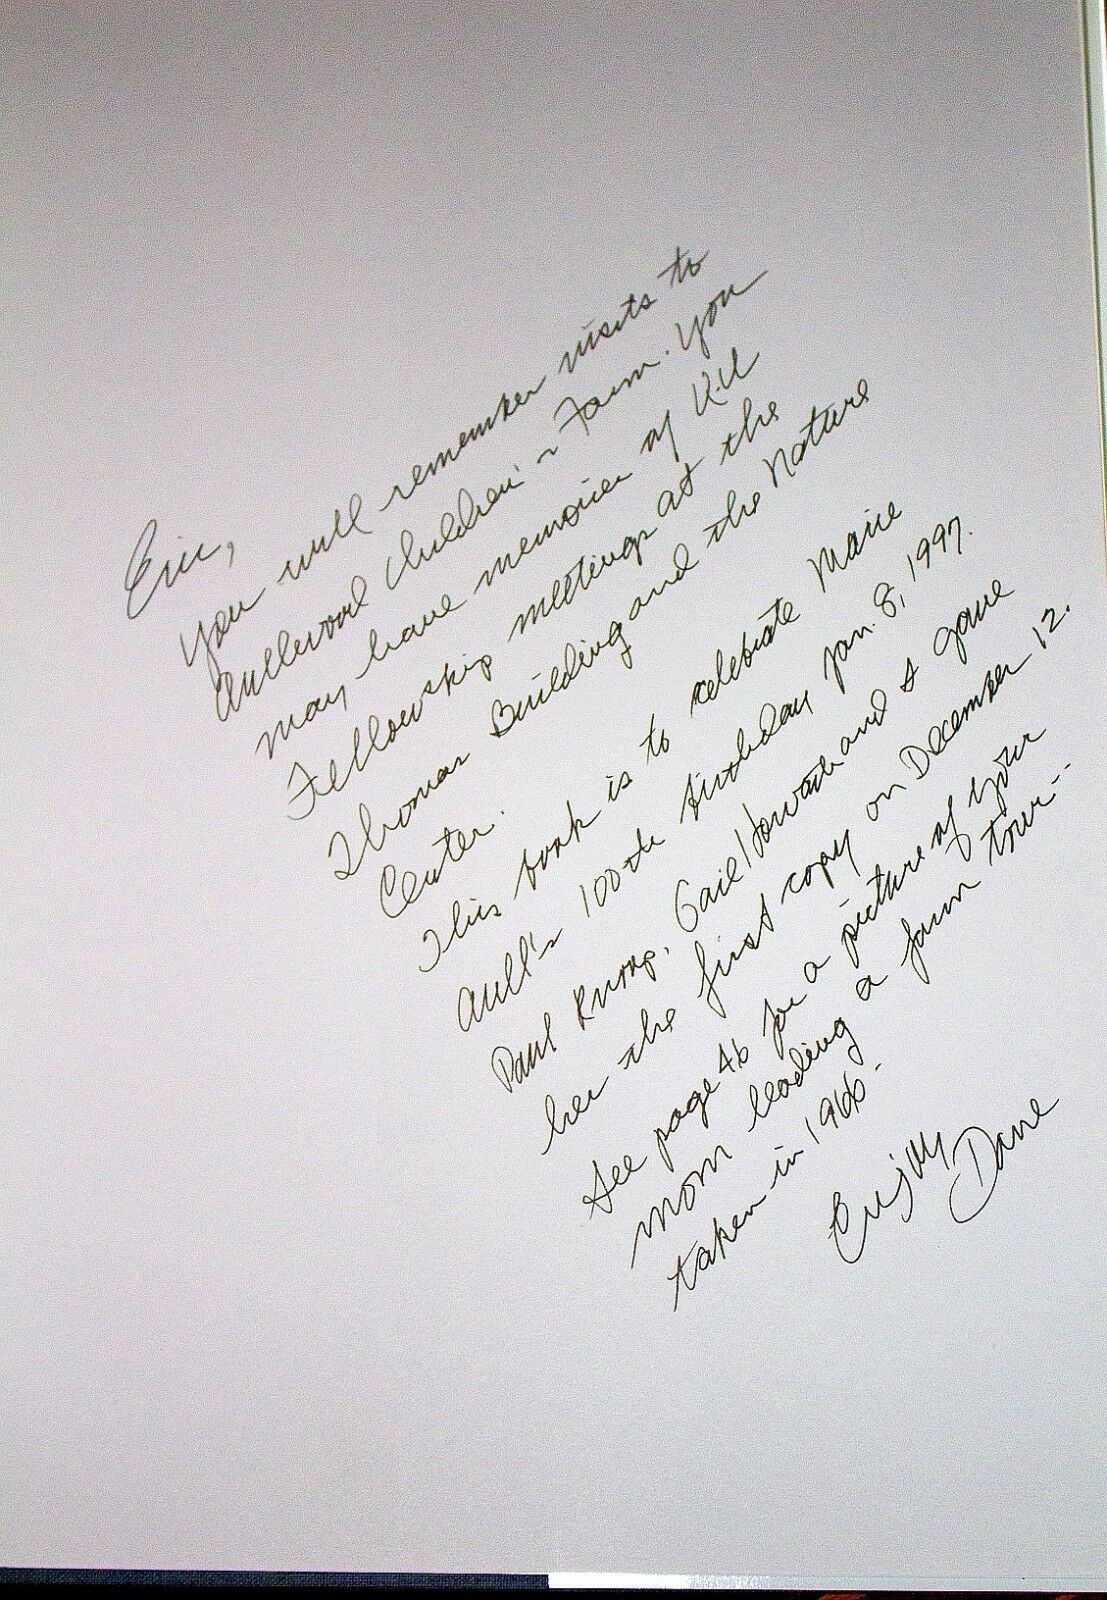 Eric,
You will remember visits to
Aullwood Children's Farm. You
may have memories of U.U
Fellowship meetings at the
Thomas Building and the Nature
Center.
This book is to celebrate Marie
Aull's 100th birthday Jan. 8, 1997.
Paul Knoop, Gail Horvath and I gave
her the first copy on December 12.
See page 46 for a picture of your
mom leading a farm tour..
taken in 1966.
Enjoy
Dane